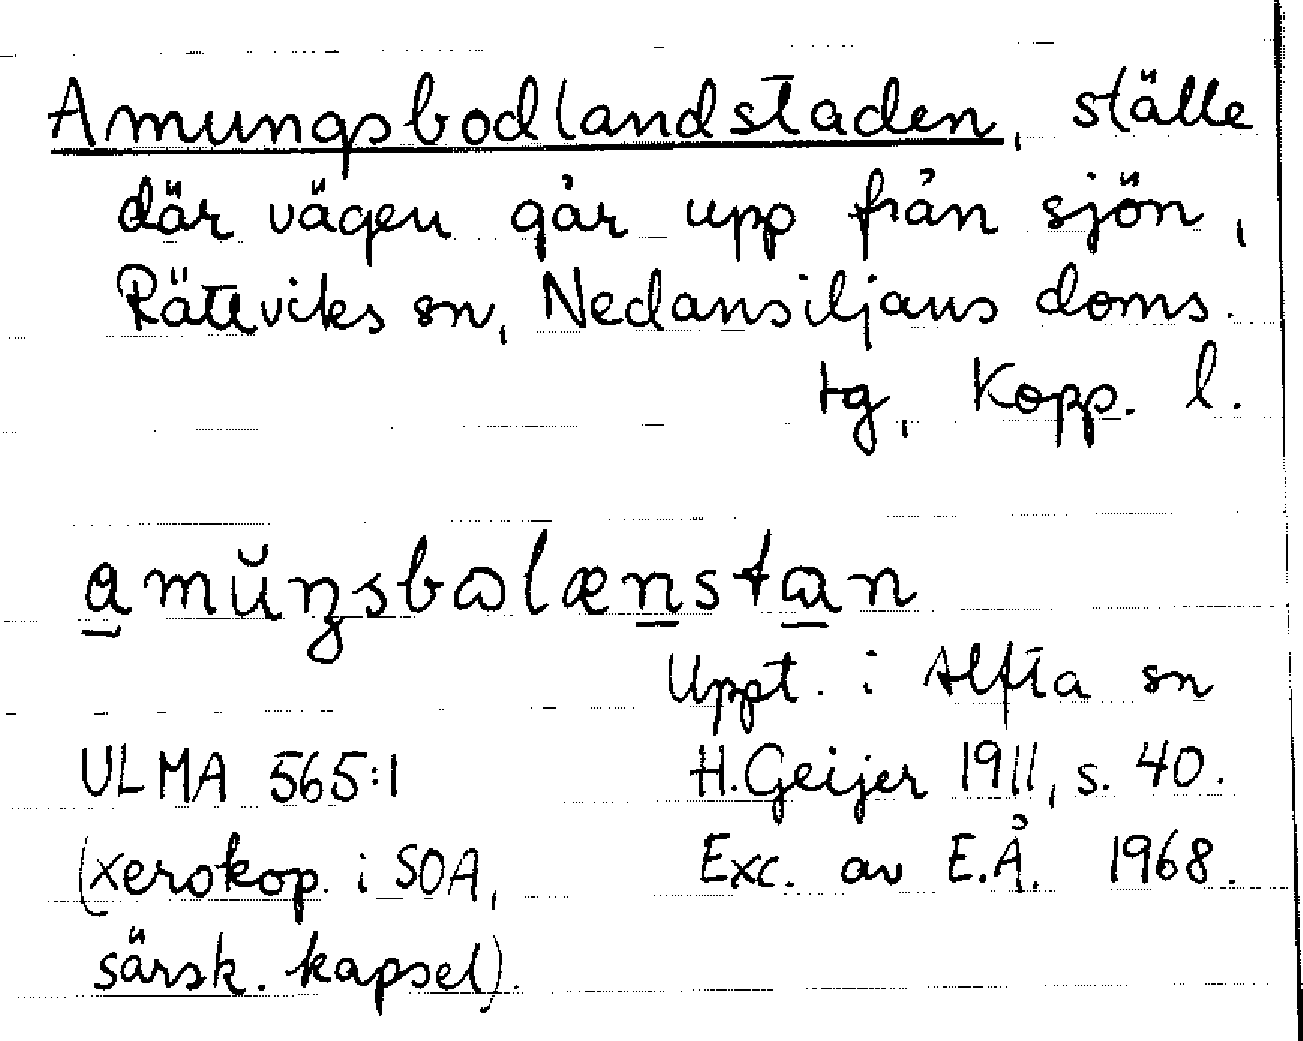 Amungsbodlandstaden, ställe
där vägen går upp från sjön,
Rättviks sn, Nedansiljans doms.
tg, Kopp. l.
a̲mŭŋsbɷlæn̲stɷ̲n
Uppt. i Alfta sn
ULMA 565:1 H.Geijer 1911, s. 40.
(xerokop. i SOA, Exc. av E.Å. 1968.
särsk. kapsel).